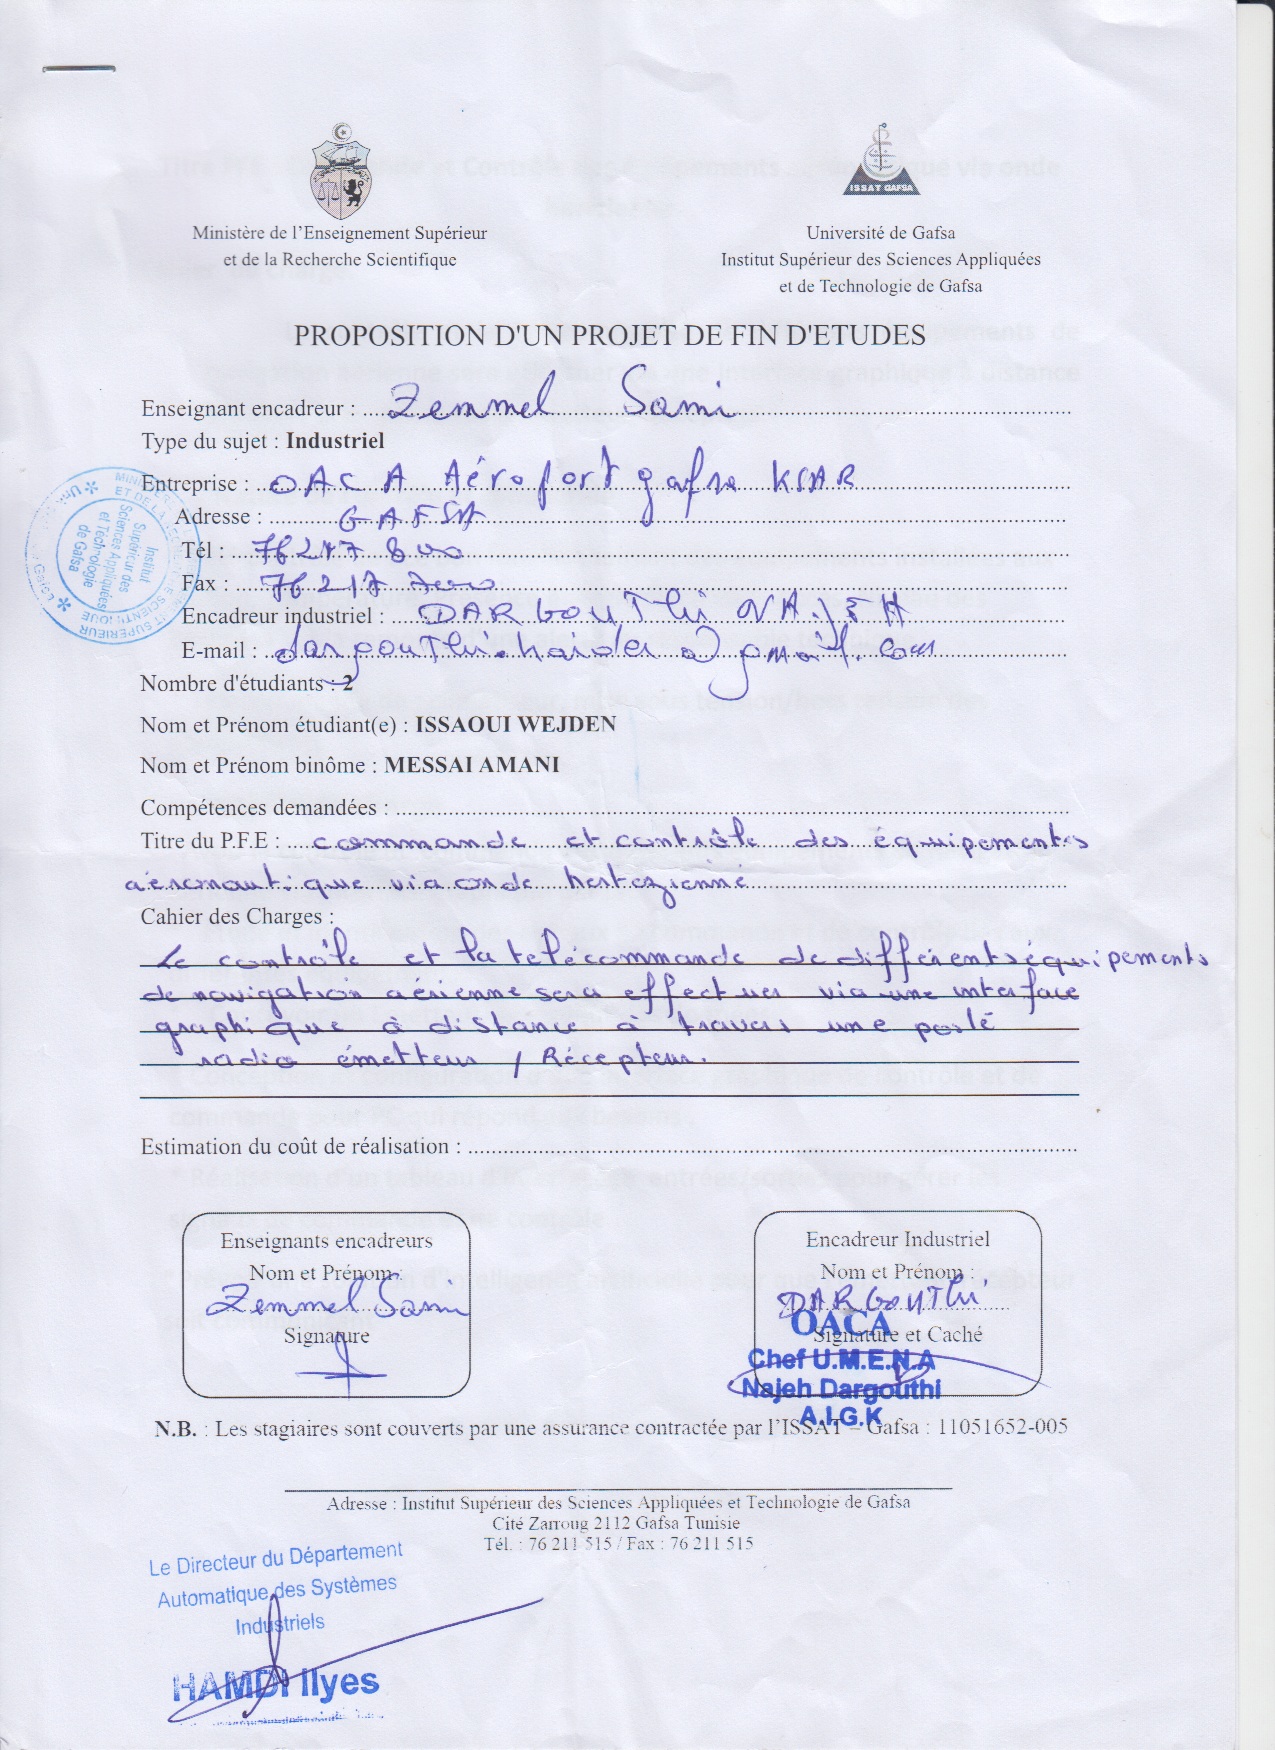 ISSAT GAFSA
Ministère de l'Enseignement Supérieur
et de la Recherche Scientifique
Université de Gafsa
Institut Supérieur des Sciences Appliquées
et de Technologie de Gafsa
PROPOSITION D'UN PROJET DE FIN D'ETUDES
Enseignant encadreur : Zemmel Sami
Type du sujet : Industriel
Entreprise : OACA Aéroport gafsa KSAR
Adresse : GAFSA
Tél : 76 217 800
Fax : 76 217 700
Encadreur industriel : DARGOUTHI NAJEH
E-mail : dargouthi.haider@gmail.com
Nombre d'étudiants : 2
Nom et Prénom étudiant(e) : ISSAOUI WEJDEN
Nom et Prénom binôme : MESSAI AMANI
Compétences demandées :
Titre du P.F.E : commande et contrôle des équipements
aéronautique via onde hertezienne
Cahier des Charges :
Le contrôle et la telécommande de différents équipements
de navigation aérienne sera effectuer via une interface
graphique à distance à travers une porté
radio émetteur / Récepteur.
Estimation du coût de réalisation :
Enseignants encadreurs
Nom et Prénom :
Zemmel Sami
Signature
Encadreur Industriel
Nom et Prénom :
DARGOUTHI
Signature et Caché
OACA
Chef U.M.E.N.A
Najeh Dargouthi
A.I.G.K
N.B. : Les stagiaires sont couverts par une assurance contractée par l'ISSAT – Gafsa : 11051652-005
Adresse : Institut Supérieur des Sciences Appliquées et Technologie de Gafsa
Cité Zarroug 2112 Gafsa Tunisie
Tél. : 76 211 515 / Fax : 76 211 515
Le Directeur du Département
Automatique des Systèmes
Industriels
HAMDI Ilyes
Institut
Supérieur des
Sciences Appliquées
et Technologie
de Gafsa